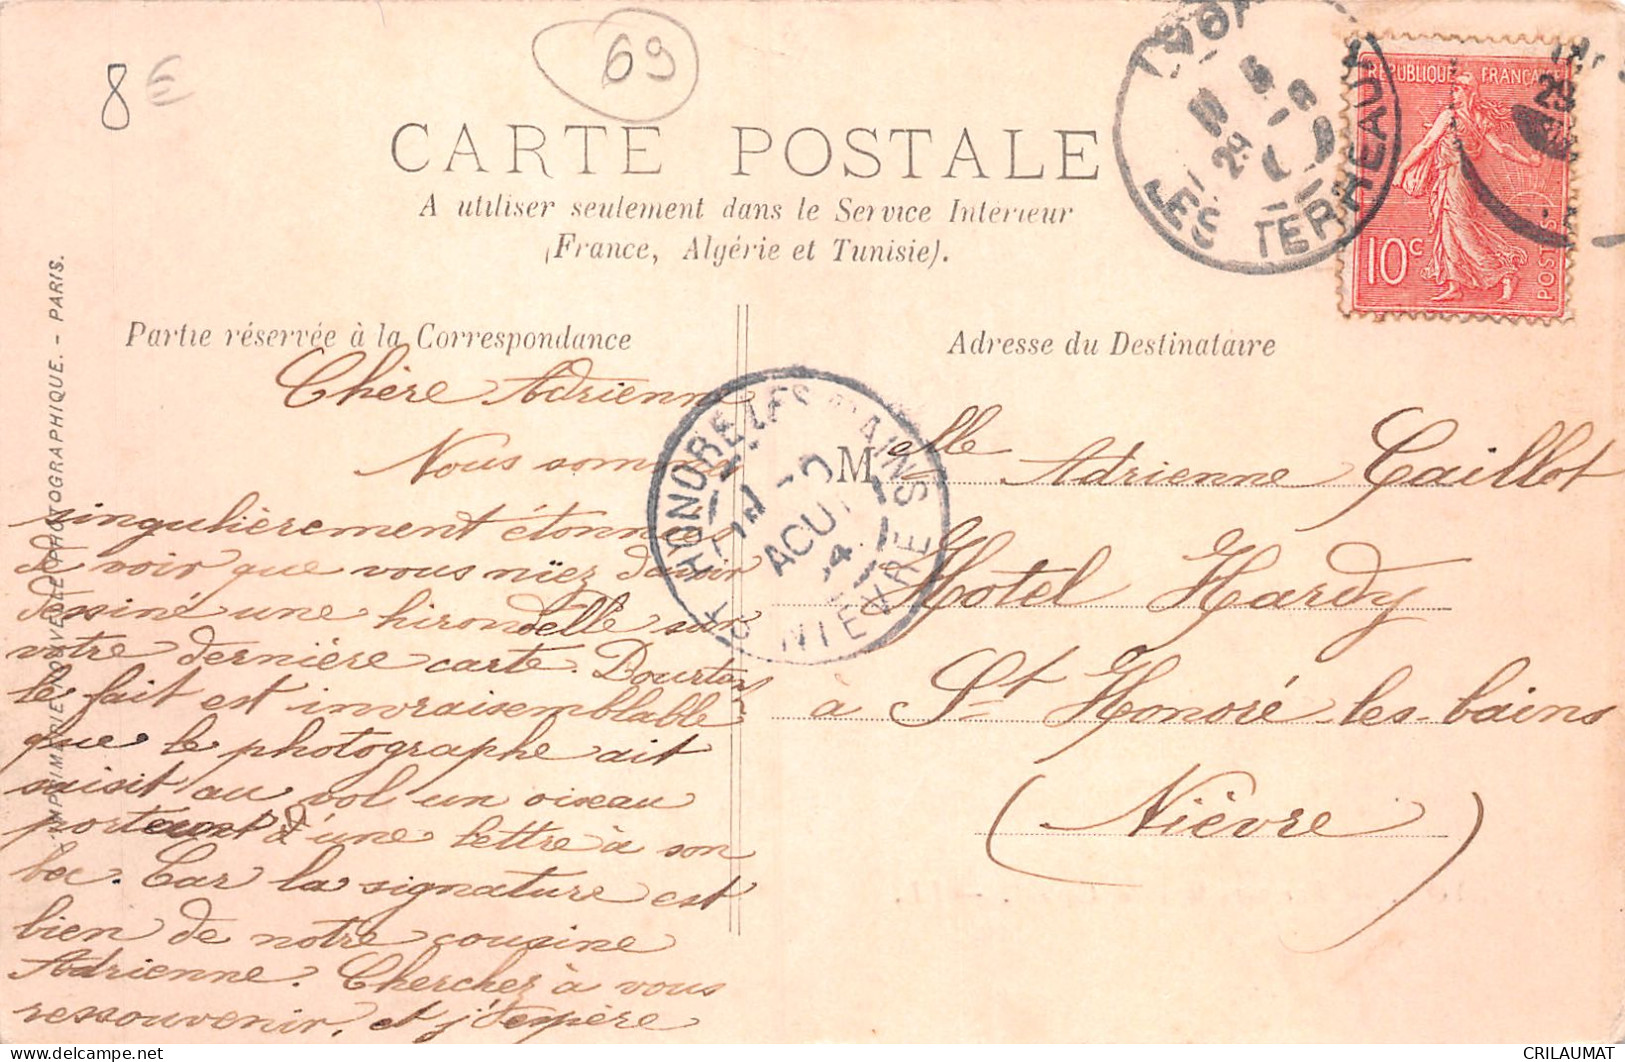 8 €
69
CARTE POSTALE
A utiliser seulement dans le Service Intérieur
(France, Algérie et Tunisie).
LES TERREAUX
REPUBLIQUE FRANÇAISE
10c
POSTES
IMPRIMERIE NOUVELLE PHOTOGRAPHIQUE. - PARIS.
Partie réservée à la Correspondance
Chère Adrienn
Nous som
singulièrement étonn
de voir que vous niez d'avoir
dessiné une hirondelle sur
votre dernière carte. Pourtant
le fait est invraisemblable
que le photographe ait
saisit au vol un oiseau
porteur d'une lettre à son
bec. Car la signature est
bien de notre cousine
Adrienne. Cherchez à vous
ressouvenir, et j'espère
ST HONORE LES BAINS
AOUT
04
NIEVRE
Adresse du Destinataire
Melle Adrienne Caillot
Hotel Hardy
à St Honoré-les-bains
(Nièvre)
https://www.delcampe.net
CRILAUMAT